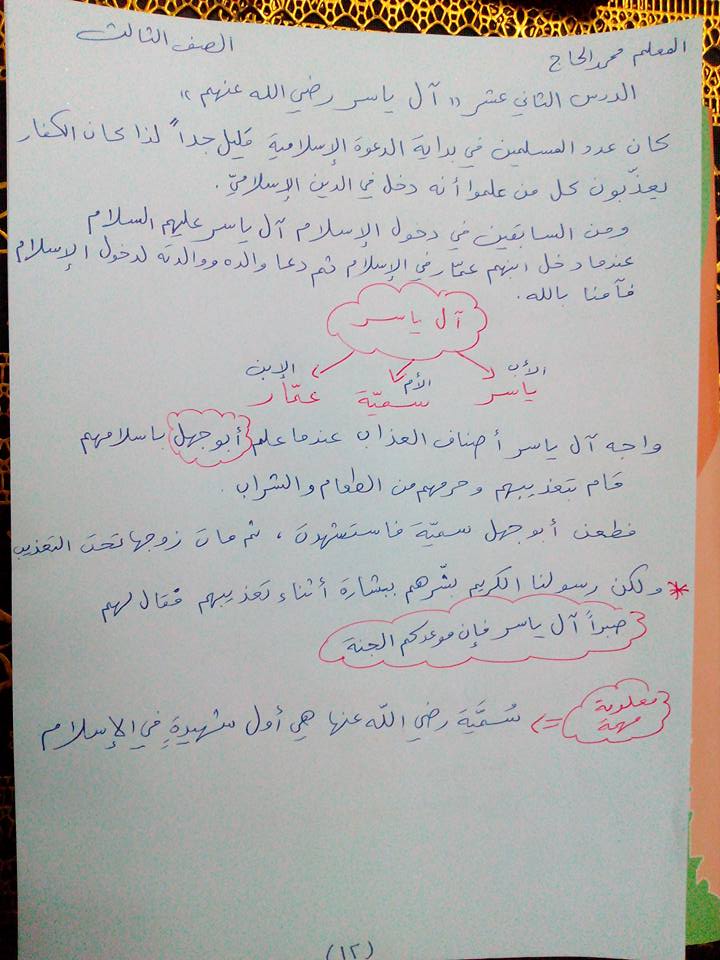 المعلم محمد الحاج
الصف الثالث
الدرس الثاني عشر "آل ياسر رضي الله عنهم"
كان عدد المسلمين في بداية الدعوة الإسلامية قليل جداً لذا كان الكفار
يعذّبون كل من علموا أنه دخل في الدين الإسلاميّ.
ومن السابقين في دخول الإسلام آل ياسر عليهم السلام
عندما دخل ابنهم عمّار في الإسلام ثم دعا والده ووالدته لدخول الإسلام
فآمنا بالله.
آل ياسر
الأب الأم الإبن
ياسر سميّة عمّار
واجه آل ياسر أصناف العذاب عندما علم أبو جهل باسلامهم
قام بتعذيبهم وحرمهم من الطعام والشراب.
فطعن أبو جهل سميّة فاستشهدت، ثم مات زوجها تحت التعذيب
* ولكن رسولنا الكريم بشّرهم ببشارة أثناء تعذيبهم فقال لهم
صبراً آل ياسر فإن موعدكم الجنة
معلومة مهمة => سُميَّة رضي الله عنها هي أول شهيدةٍ في الإسلام
(١٢)